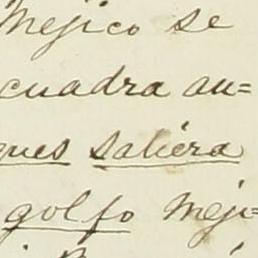 Mejico se
cuadra au=
ques saliera
golfo Meji=